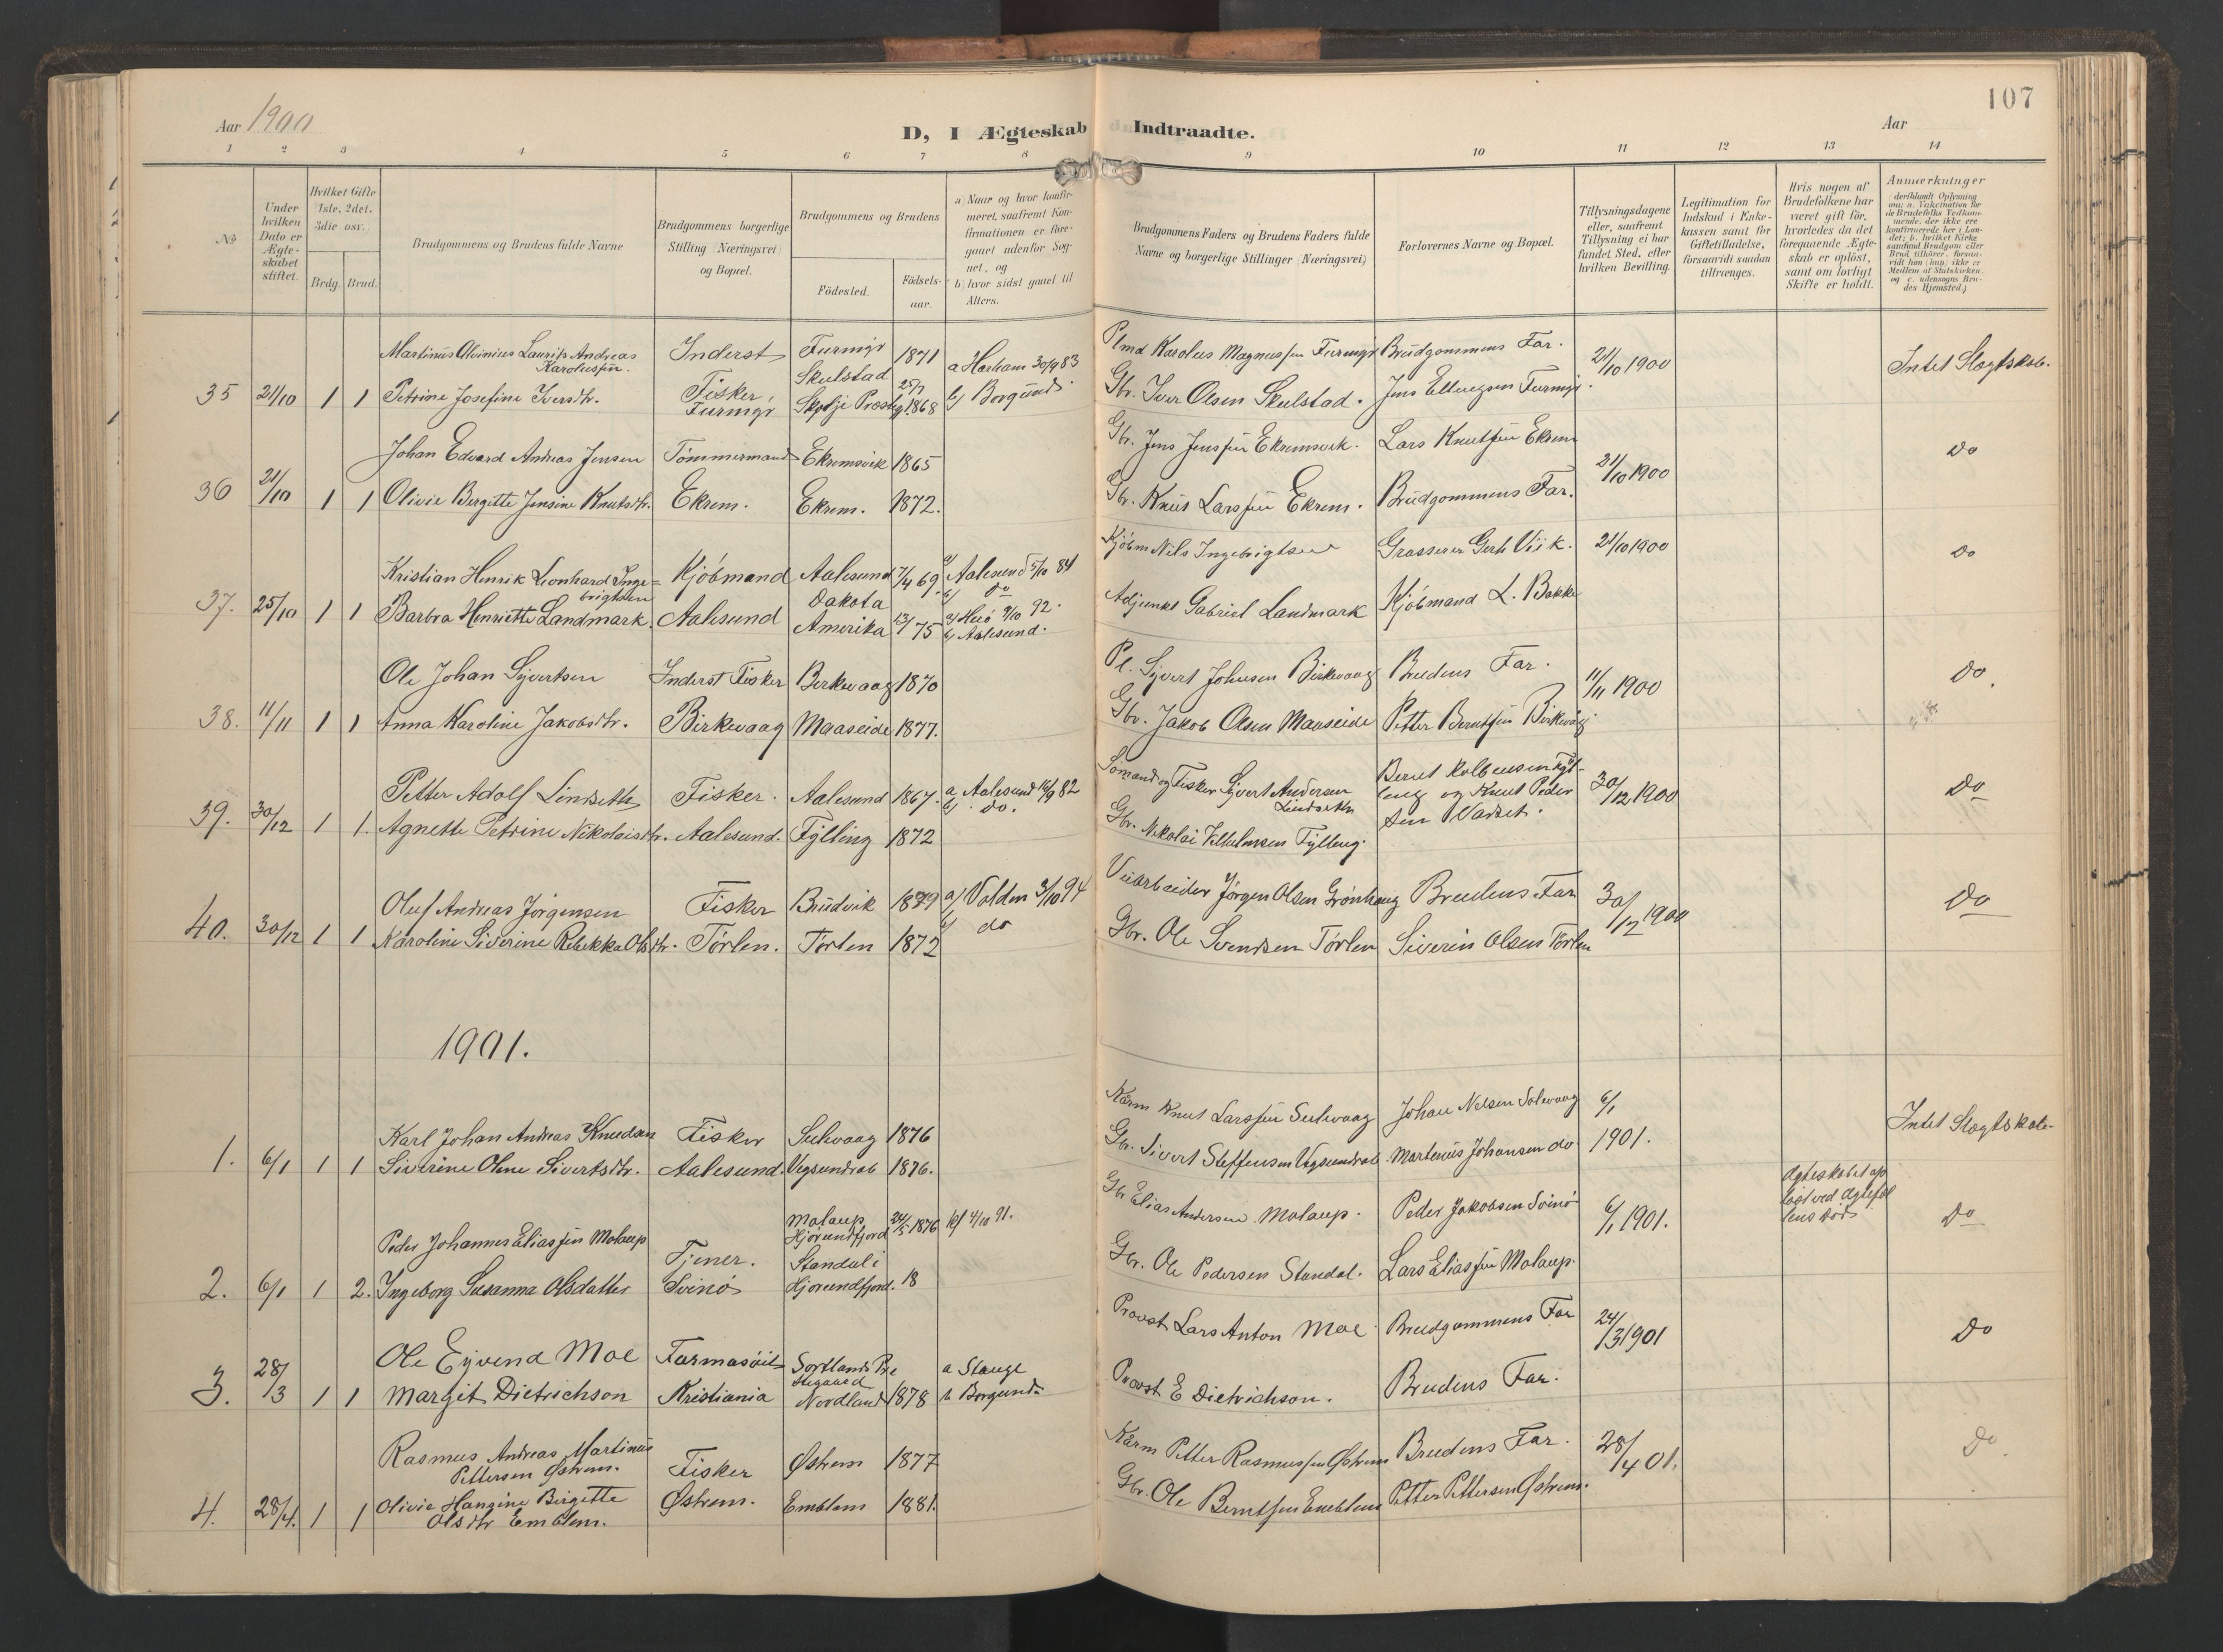 107
Aar 1900
D, I Ægteskab Indtraadte.
Aar
1 2 3 4 5 6 7 8 9 10 11 12 13 14
No
Under hvilken Dato er Ægteskabet stiftet.
Hvilket Gifte (1ste, 2det, 3die osv.)
Brdg. Brud.
Brudgommens og Brudens fulde Navne
Brudgommens borgerlige Stilling (Næringsvei) og Bopæl.
Brudgommens og Brudens
Födested.
Födsels-aar.
a) Naar og hvor konfirmeret, saafremt Konfirmationen er foregaaet udenfor Sognet, og
b) hvor sidst gaaet til Alters.
Brudgommens Faders og Brudens Faders fulde Navne og borgerlige Stillinger (Næringsvei)
Forlovernes Navne og Bopæl.
Tillysningsdagene eller, saafremt Tillysning ei har fundet Sted, efter hvilken Bevilling.
Legitimation for Indskud i Enkekassen samt for Giftetilladelse, forsaavidt saadan tiltrænges.
Hvis nogen af Brudefolkene har været gift för, hvorledes da det foregaaende Ægteskab er oplöst, samt om lovligt Skifte er holdt.
Anmærkninger
(deriblandt Oplysning om: a. Vakcination for de Brudefolks Vedkommende, der ikke ere konfirmerede her i Landet; b. hvilket Kirkesamfund Brudgom eller Brud tilhörer, forsaavidt han (hun) ikke er Medlem af Statskirken, og c. udensogns Brudes Hjemsted.)
Martinus Olvinius Laurits Andreas Karolussen. Inderst Furmyr 1871 a Harham 30/9 83 Plmd Karolus Magnussen Furmyr Brudgommens Far. 21/10 1900 Intet Slægtskab.
35 21/10 1 1 Petrine Josefine Iversdtr. Fisker Furmyr Skulstad Skodje Præstg 25/7 1868 b) Borgund Gbr. Iver Olsen Skulstad. Jens Ellingsen Furmyr.
Johan Edvard Andreas Jensen Tömmermand Ekremsvik 1865 Gbr. Jens Jenssen Ekremsvik. Lars Knutsen Ekrem 21/10 1900 do
36 21/10 1 1 Olivie Bergitte Jensine Knutsdtr. Ekrem. Ekrem. 1872. Gbr. Knut Larssen Ekrem. Brudgommens Far.
Kristian Henrik Leonhard Ingebrigtsen Kjöbmand Aalesund 7/4 69. a) Aalesund 5/10 84 b) do Kjöbm Nils Ingebrigtsen Grosserer Gerh Viik. 21/10 1900 do
37. 25/10 1 1 Barbra Henriette Landmark. Aalesund Dakota Amerika 75 a) Herö 9/10 92. b) Aalesund. Adjunkt Gabriel Landmark Kjöbmand L. Bakke
Ole Johan Sjvertsen Inderst Fisker Birkevaag 1870 Pl. Sjvert Johnsen Birkevaag Brudens Far. 11/11 1900 do
38. 11/11 1 1 Anna Karoline Jakobsdtr. Birkevaag Maaseide 1877. Gbr. Jakob Olsen Maaseide Petter Berntsen Birkevaag
Petter Adolf Lindseth Fisker. Aalesund 1867. a Aalesund 14/9 82 b) do. Sömand og Fisker Sjvert Andersen Lindseth Bernt Kolbensen Fylling og Knut Pedersen Vadset. 30/12 1900 do
39. 30/12 1 1. Agnette Petrine Nikolaisdtr. Aalesund. Fylling 1872 Gbr. Nikolai Vilhelmsen Fylling
Oluf Andreas Jörgensen Fisker Brudvik 1879 a) Volden 3/10 94 b) do Veiarbeider Jørgen Olsen Grönhaug Brudens Far 30/12 1900 do
40. 30/12 1 1 Karoline Siverine Rebekka Olsdtr. Tørlen. Torlen 1872 Gbr. Ole Svendsen Tørlen Siverin Olsen Torlen
1901.
Karl Johan Andreas Knudsen Fisker Sulevaag 1876 Kårm Knut Larssen Sulevaag Johan Nelsen Solevaag 6/1 1901. Intet Slægtskab
1. 6/1 1 1 Siverine Oline Sivertsdtr. Aalesund. Vegsundrab 1876. Gbr. Sivert Steffensen Vegsundrab Martinus Johansen do
Peder Johannes Eliassen Molaup Tjener. Molaup Hjørundfjord 24/5 1876 kf 4/10 91. Gbr Elias Andersen Molaup. Peder Jakobsen Svinö 6/1 1901. Ægteskabet opløst ved Ægtefællens Död do
2. 6/1 1 2. Ingeborg Susanna Olsdatter Svinö Standal i Hjørundfjord. 18 Gbr. Ole Pedersen Standal. Lars Eliassen Molaup.
Ole Eyvend Moe Farmasöit Sortlands Præstegaard a Stange Provst Lars Anton Moe Brudgommens Far 24/3 1901 do
3. 28/3 1 1 Margit Dietrichson Kristiania Nordland 1878 b Borgund Provst E Dietrichson. Brudens Far.
Rasmus Andreas Martinus Pettersen Østrem. Fisker Østrem 1877 Kårm Petter Rasmussen Østrem Brudens Far. 28/4 01. do.
4. 28/4. 1 1 Olivie Hansine Birgitte Olsdtr Emblem. Østrem. Emblem 1881. Gbr. Ole Berntsen Emblem Petter Pettersen Østrem.